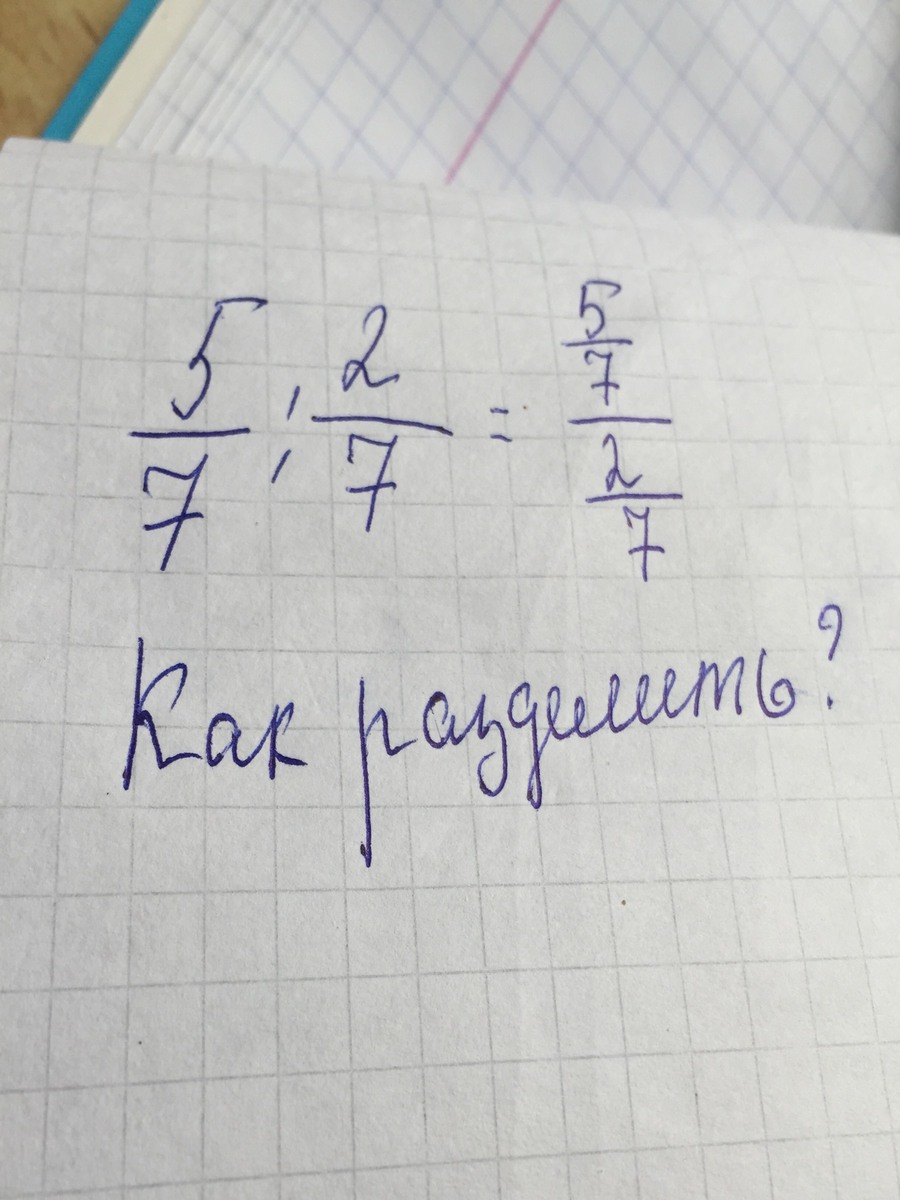 5/7 : 2/7 = 5/7 / 2/7
Как разделить?